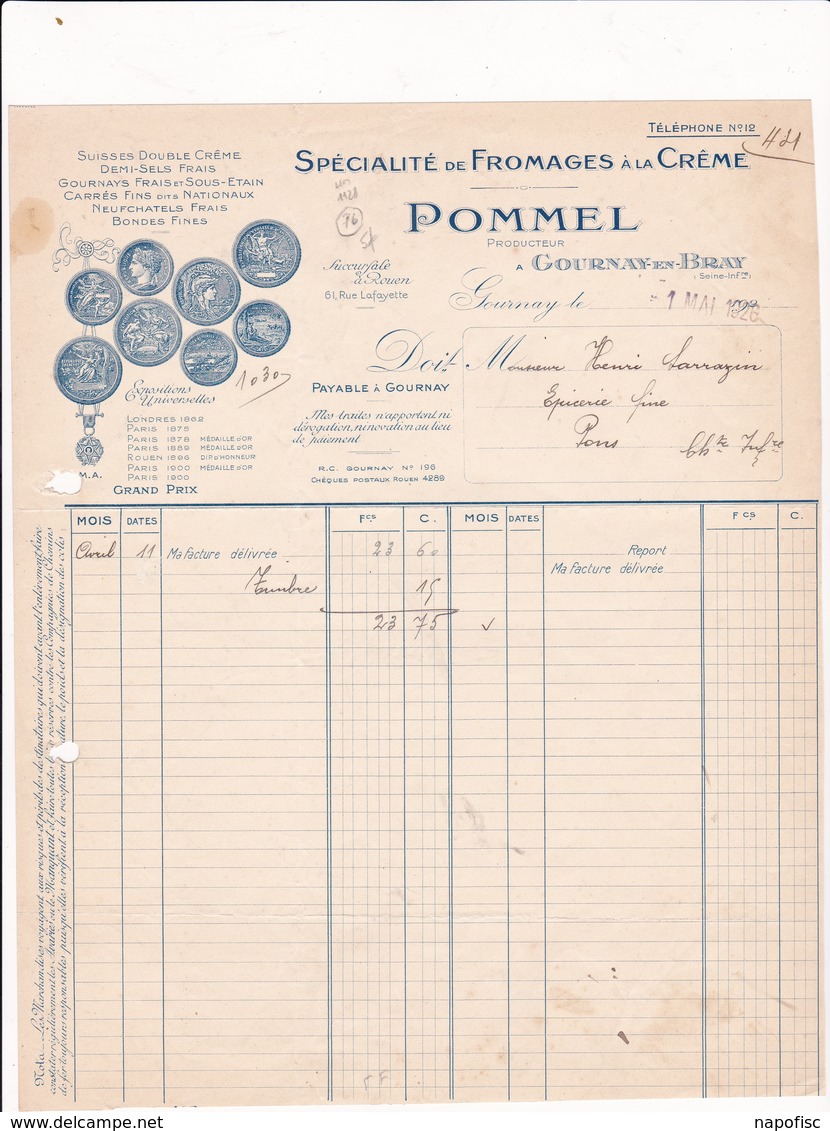 TÉLÉPHONE Nº 12
481
SUISSES DOUBLE CRÊME
DEMI-SELS FRAIS
GOURNAYS FRAIS ET SOUS-ETAIN
CARRÉS FINS DITS NATIONAUX
NEUFCHATELS FRAIS
BONDES FINES
SPÉCIALITÉ DE FROMAGES À LA CRÊME
1128
76
POMMEL
PRODUCTEUR
A GOURNAY-EN-BRAY
(Seine-Infre)
Succursale
à Rouen
61, Rue Lafayette
Gournay le 1 MAI 1926
Doit Monsieur Henri Sarrazin
Epicerie fine
Pons Chte Infre
PAYABLE À GOURNAY
Mes traites n'apportent ni
dérogation, ni novation au lieu
de paiement
R.C. GOURNAY Nº 196
CHÈQUES POSTAUX ROUEN 4289
Expositions
Universelles
1030
LONDRES 1862
PARIS 1875
PARIS 1878 MÉDAILLE D'OR
PARIS 1889 MÉDAILLE D'OR
ROUEN 1896 DIP. D'HONNEUR
PARIS 1900 MÉDAILLE D'OR
PARIS 1900
GRAND PRIX
M.A.
MOIS DATES Fcs C. MOIS DATES Fcs C.
Avril 11 Ma facture délivrée 23 60 Report
Ma facture délivrée
Timbre 15
23 75
Nota.— Les Marchandises voyagent aux risques et périls des destinataires qui doivent avant l'enlèvement faire
constater régulièrement les Avaries ou le Manquant et faire toutes réserves contre les Compagnies de Chemins
de fer toujours responsables puisqu'elles vérifient à la réception nature, le poids et la désignation des colis
napofisc